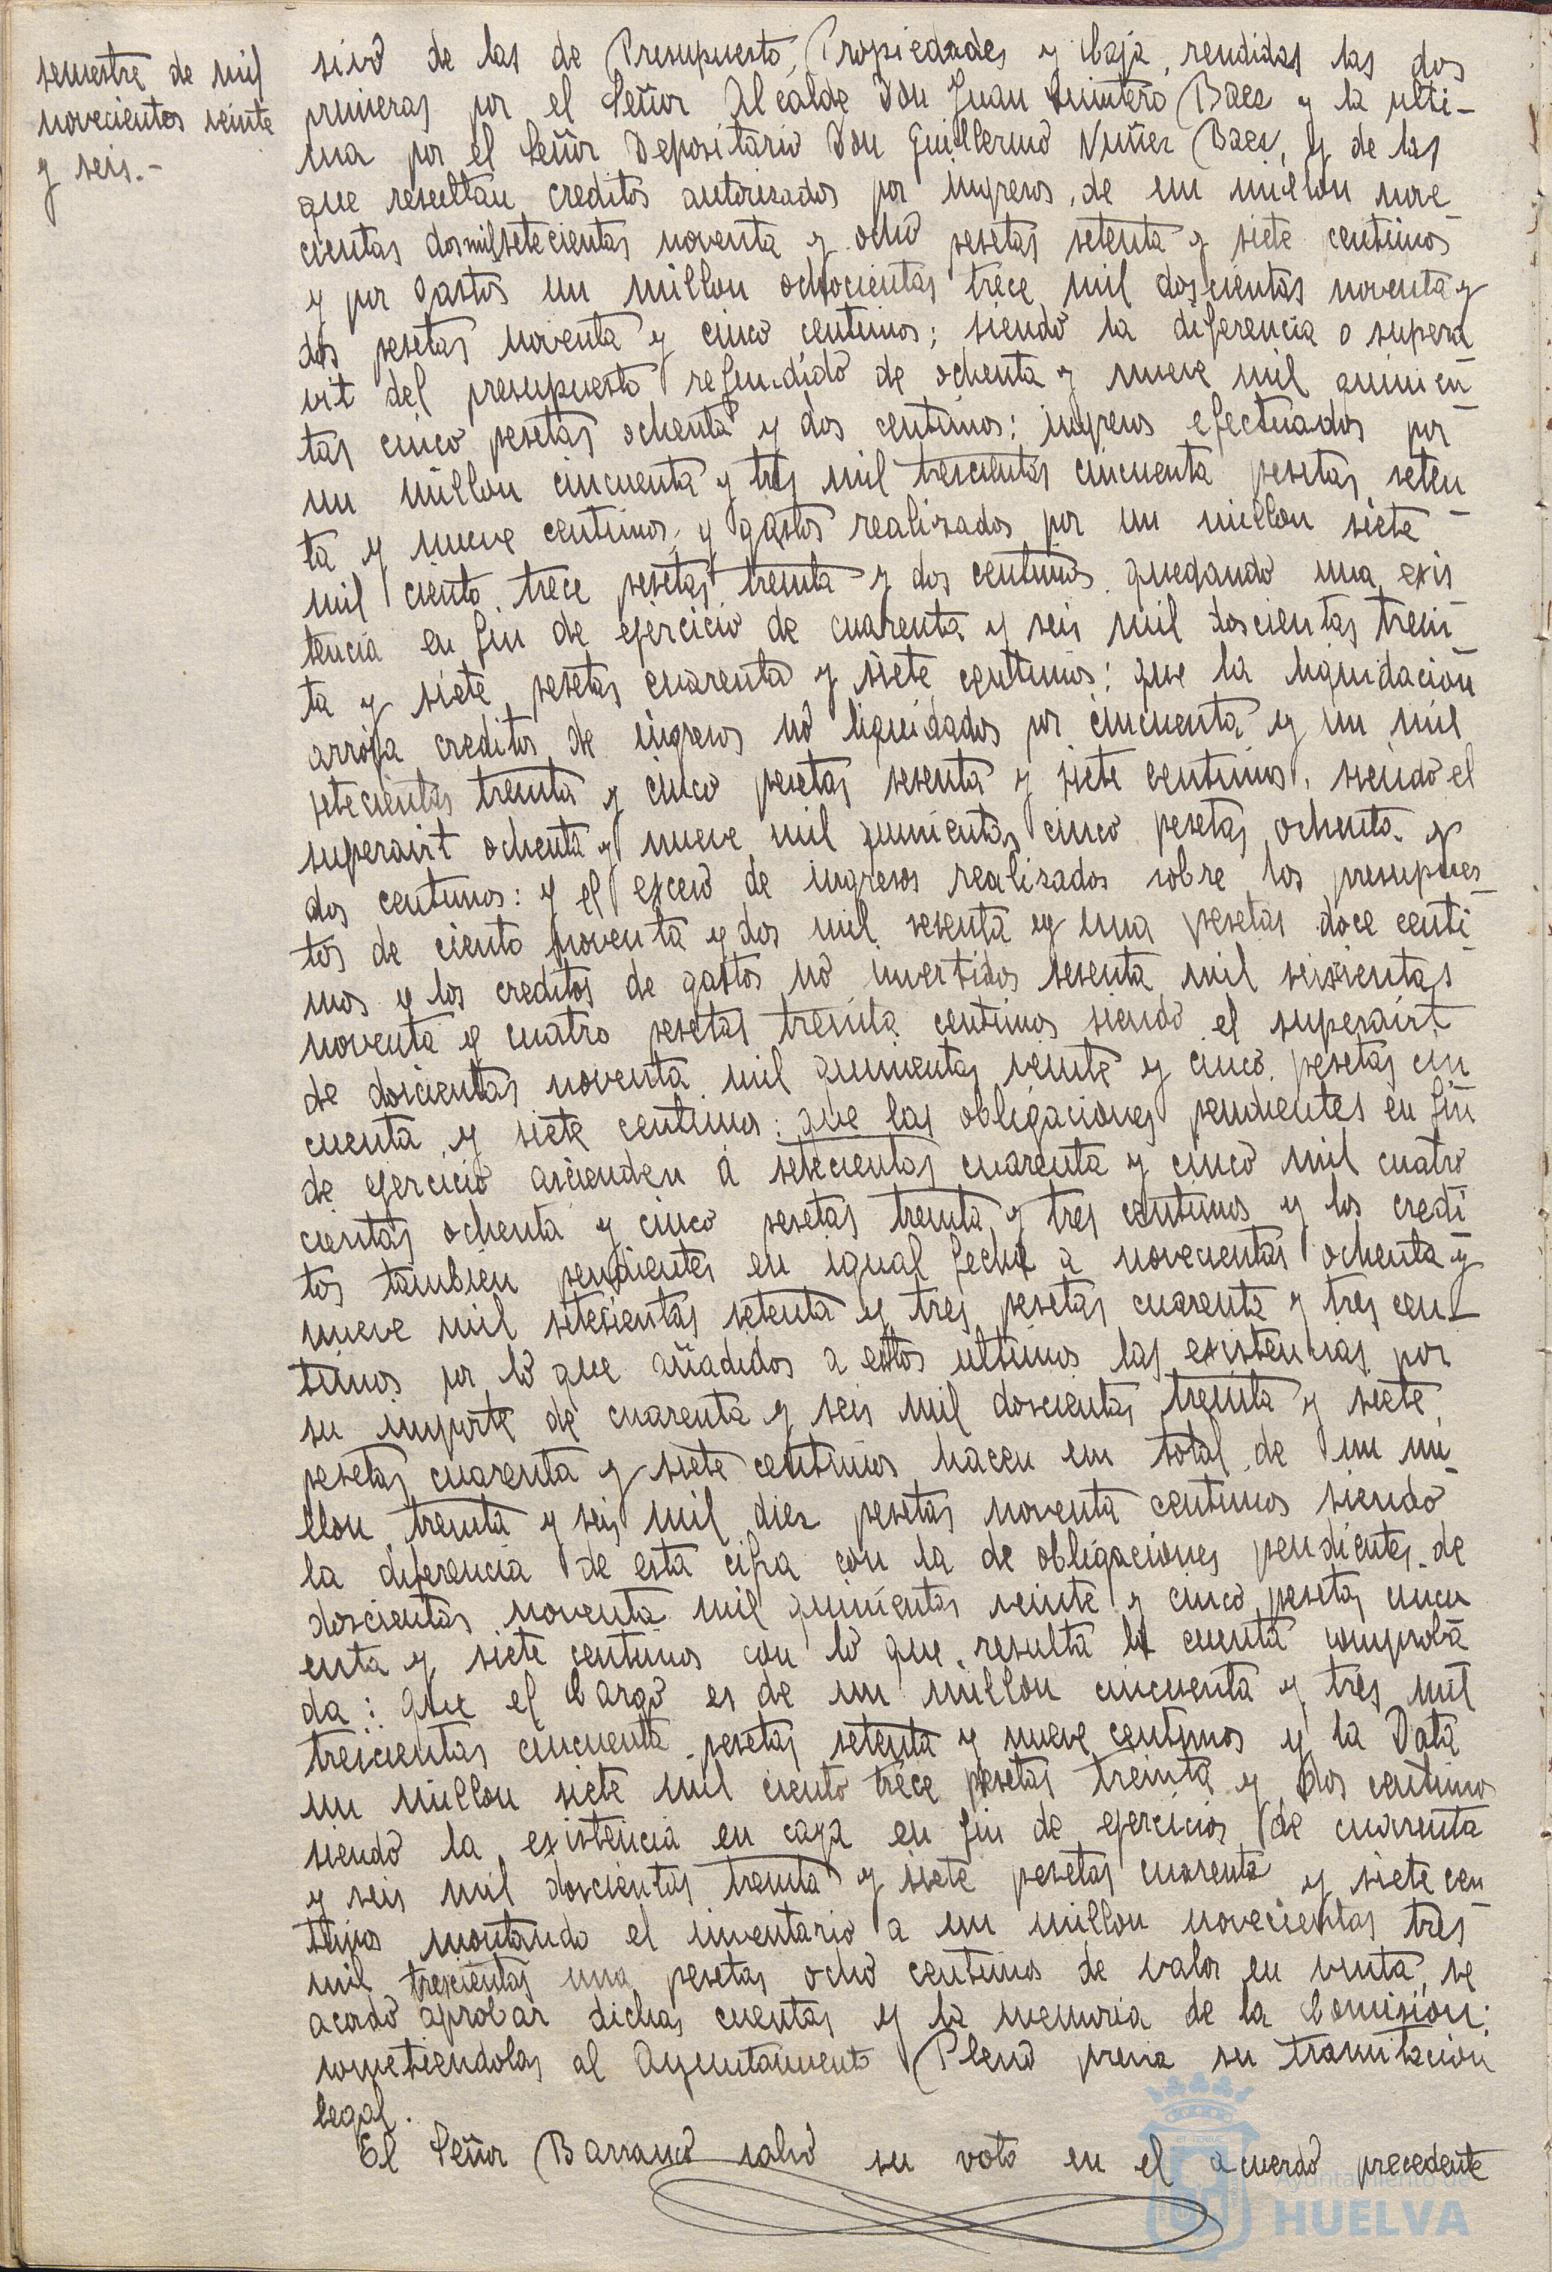 semestre de mil
novecientos veinte
y seis.-
sivo de las de Presupuesto, Propiedades y Caja, rendidas las dos
primeras por el Señor Alcalde Don Juan Quintero Baez y la ulti-
ma por el Señor Depositario Don Guillermo Nuñez Baez, y de las
que resultan creditos autorizados por ingresos, de un millon nove-
cientas dosmil setecientas noventa y ocho pesetas setenta y siete centimos
y por Gastos un millon ochocientas trece mil doscientas noventa y
dos pesetas noventa y cinco centimos; siendo la diferencia o supera-
vit del presupuesto refundido de ochenta y nueve mil quinien-
tas cinco pesetas ochenta y dos centimos: ingresos efectuados por
un millon cincuenta y tres mil trescientas cincuenta pesetas seten-
ta y nueve centimos, y gastos realizados por un millon siete
mil ciento trece pesetas treinta y dos centimos quedando una exis-
tencia en fin de ejercicio de cuarenta y seis mil doscientas trein-
ta y siete pesetas cuarenta y siete centimos: que la liquidacion
arroja creditos de ingresos no liquidados por cincuenta y un mil
setecientas treinta y cinco pesetas sesenta y siete centimos, siendo el
superavit ochenta y nueve mil quinientas cinco pesetas ochenta y
dos centimos: y el exceso de ingresos realizados sobre los presupues-
tos de ciento noventa y dos mil sesenta y una pesetas doce centi-
mos y los creditos de gastos no invertidos sesenta mil seiscientas
noventa y cuatro pesetas treinta centimos siendo el superavit
de doscientas noventa mil quinientas veinte y cinco pesetas cin
cuenta y siete centimos: que las obligaciones pendientes en fin
de ejercicio ascienden á setecientas cuarenta y cinco mil cuatro
cientas ochenta y cinco pesetas treinta y tres centimos y los credi
tos tambien pendientes en igual fecha a novecientas ochenta y
nueve mil setecientas setenta y tres pesetas cuarenta y tres cen-
timos por lo que añadidos a estos ultimos las existencias por
su importe de cuarenta y seis mil doscientas treinta y siete
pesetas cuarenta y siete centimos hacen un total de un mi-
llon treinta y seis mil diez pesetas noventa centimos siendo
la diferencia de esta cifra con la de obligaciones pendientes de
doscientas noventa mil quinientas veinte y cinco pesetas cincu
enta y siete centimos con lo que resulta la cuenta comproba
da: que el Cargo es de un millon cincuenta y tres mil
trescientas cincuenta pesetas setenta y nueve centimos y la Data
un millon siete mil ciento trece pesetas treinta y dos centimos
siendo la existencia en caja en fin de ejercicios de cuarenta
y seis mil doscientas treinta y siete pesetas cuarenta y siete cen
timos montando el inventario a un millon novecientas tres
mil trescientas una pesetas ocho centimos de valor en venta, se
acordó aprobar dichas cuentas y la memoria de la Comisión;
sometiendolas al Ayuntamiento Pleno previa su tramitacion
legal.
El Señor Barranco salvó su voto en el acuerdo precedente
Ayuntamiento de
HUELVA